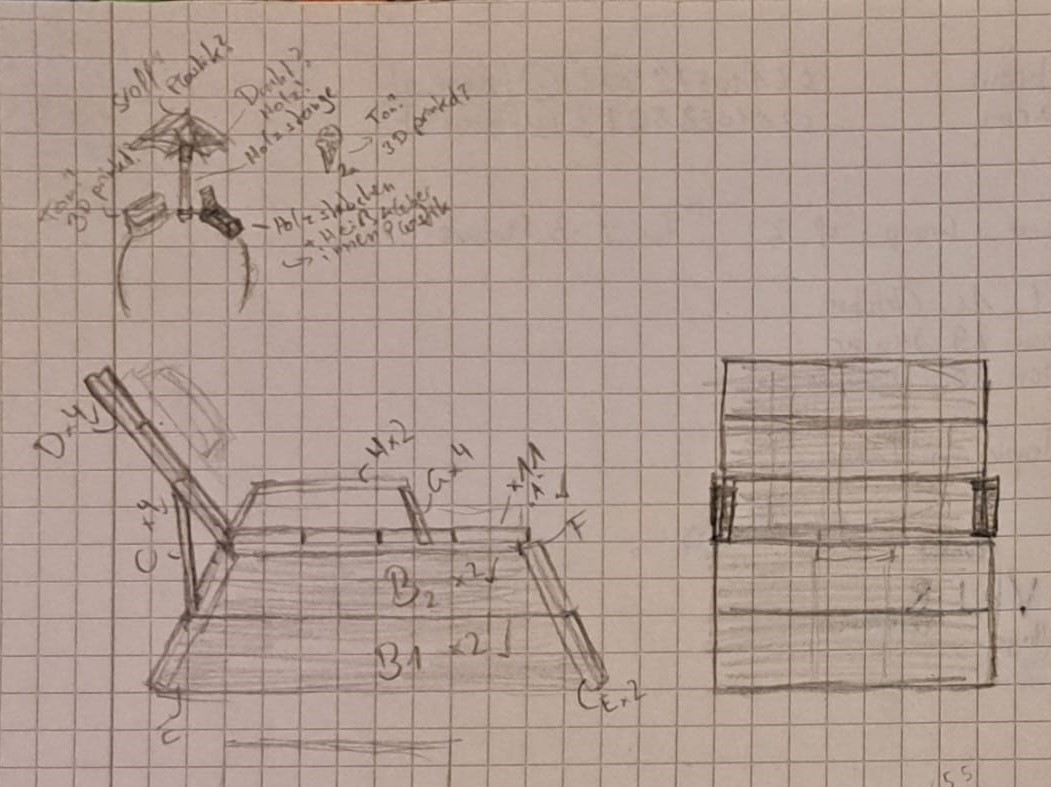 Stoff?
Plastik?
Draht?
Holz?
Holzstange
Ton?
3D printed?
Ton?
3D printed?
Holzstäbchen
+ Heißkleber
innen Plastik
D x 4
C x 4
H x 2
G x 4
x11
F
B2 x2
B1 x2
E x 2
C
55